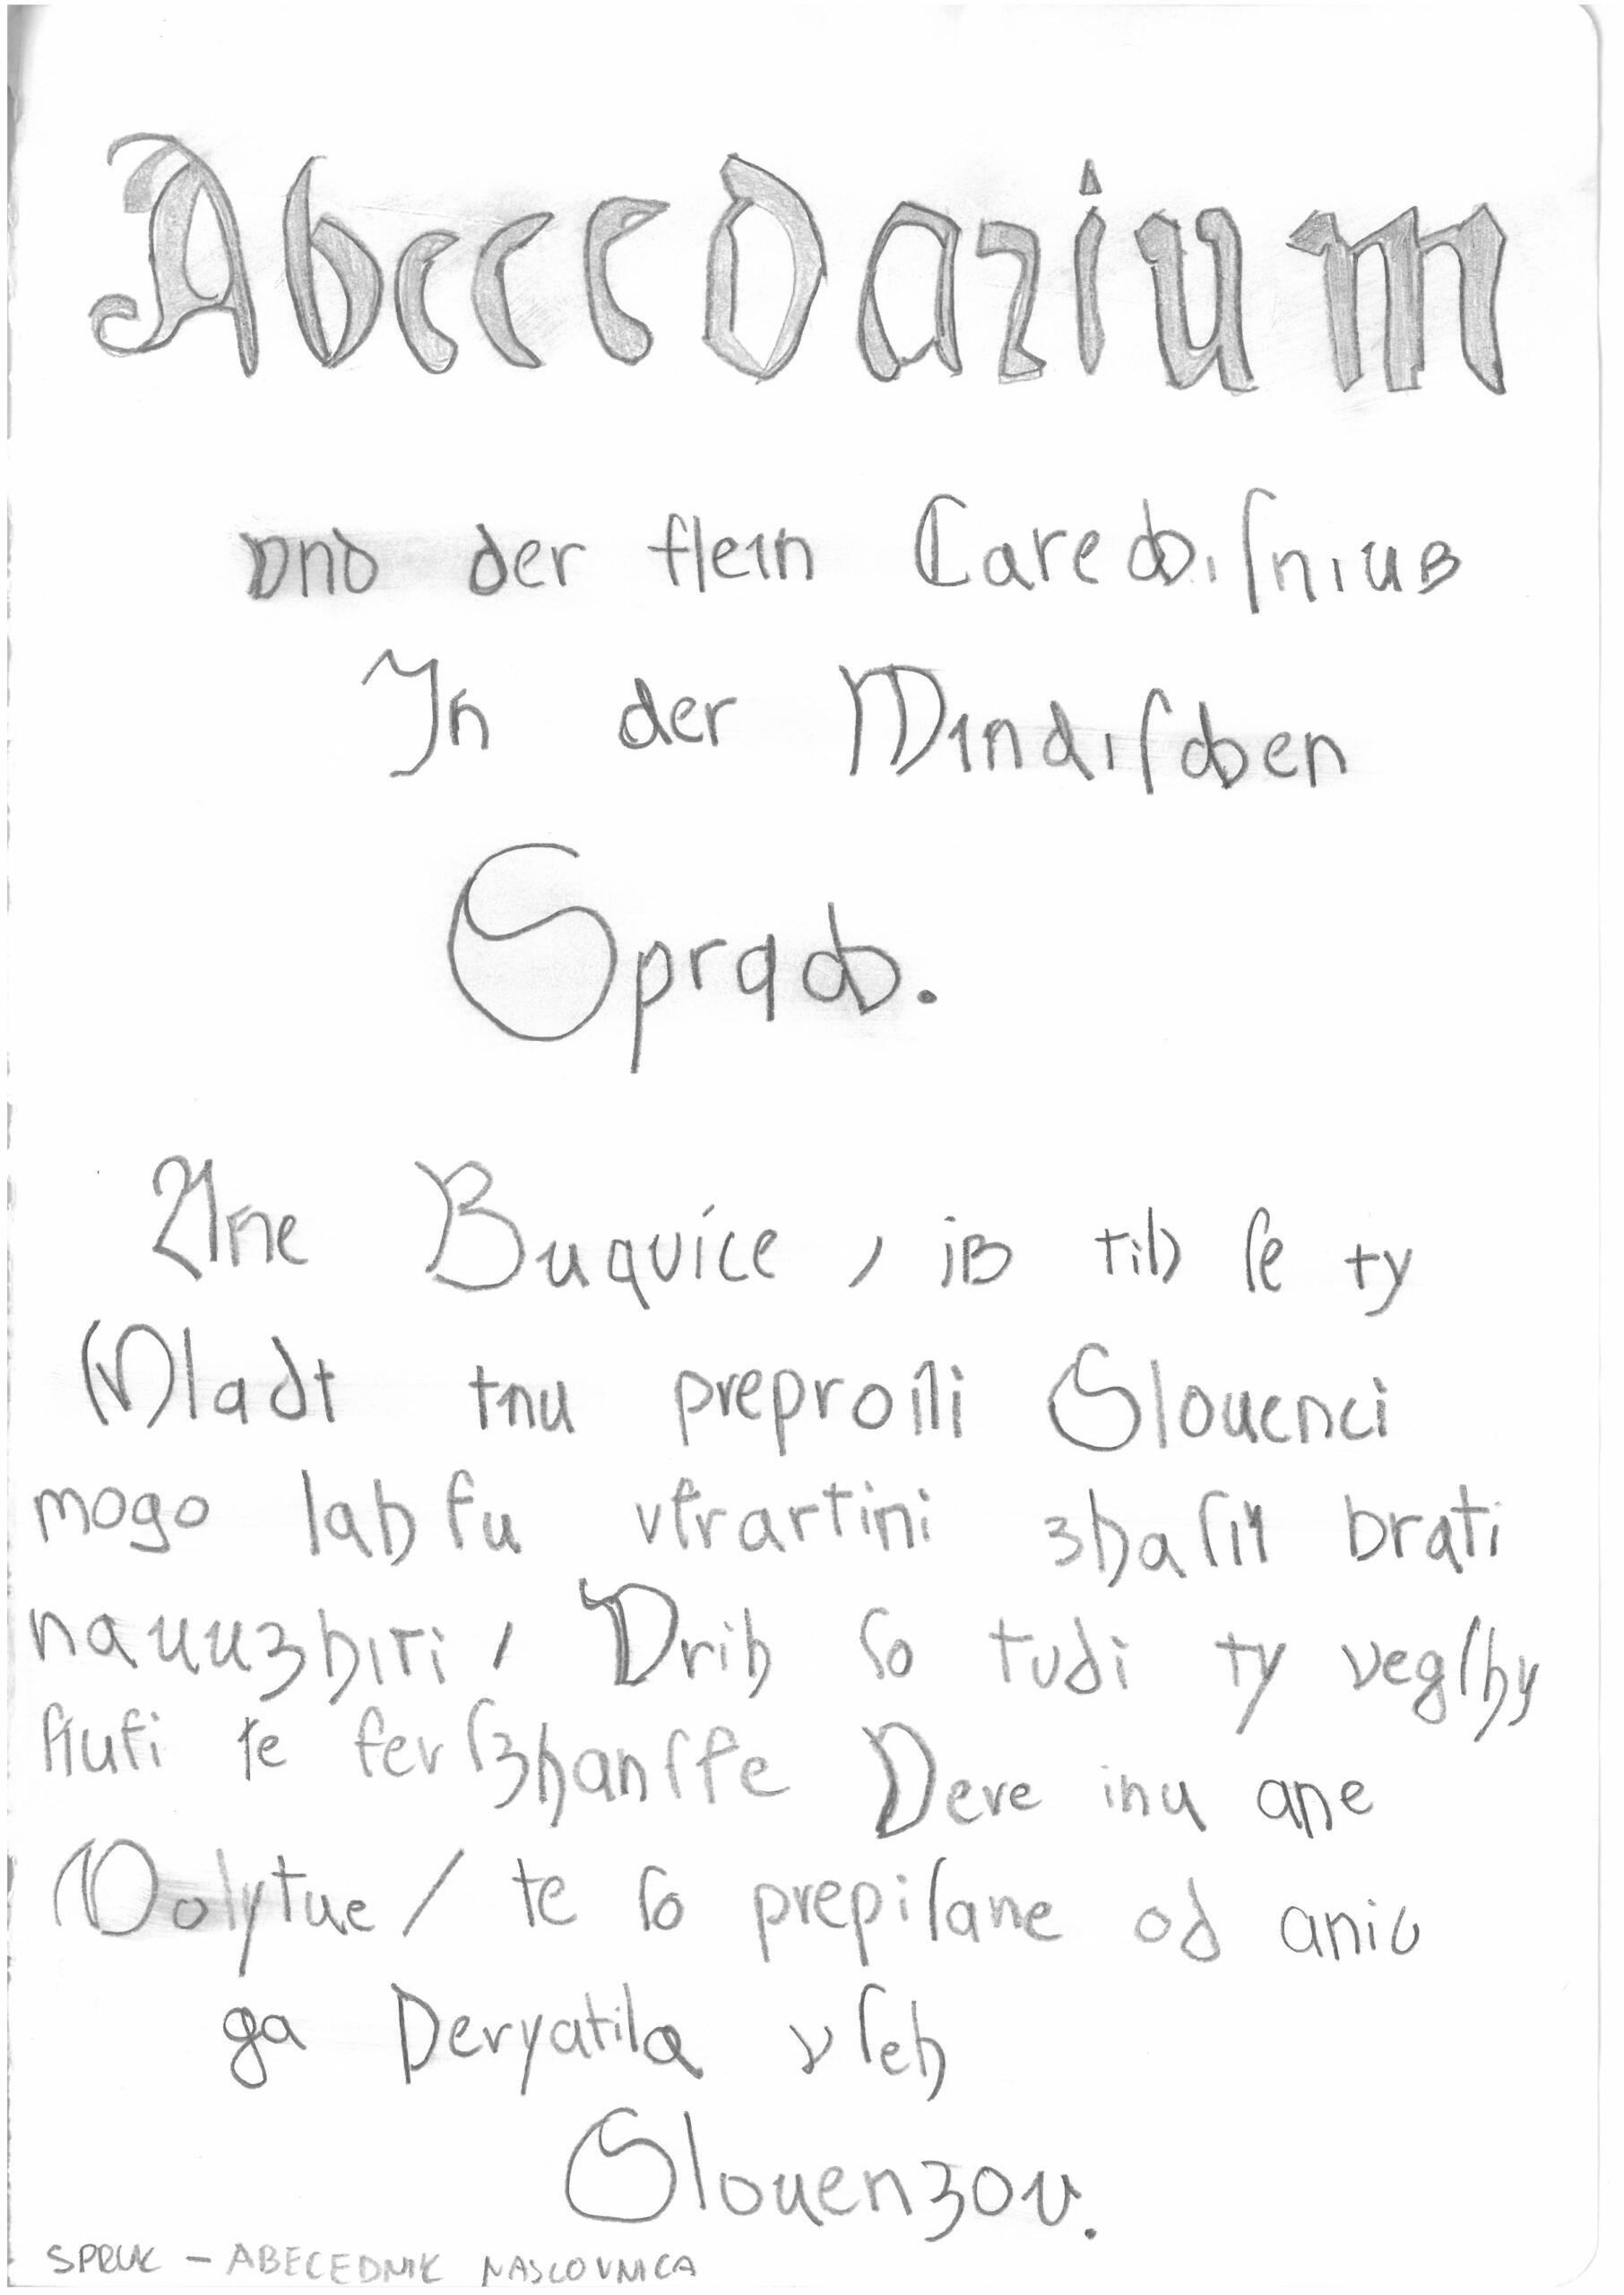 Abecedarium
vnd der klein Catechiſmus
In der Windiſchen
Sprach.
Ane Buquice, is tih ſe ty
Mladi inu preproſti Slouenci
mogo lahku vkratkim zhaſu brati
nauuzhiti / Drih ſo tudi ty vegſhy
ſtuki te kerſzhanſke Vere inu ane
Molytue / te ſo prepiſane od aniu
ga Peryatila vſeh
Slouenzou.
SPRUK – ABECEDNIK NASLOVNICA